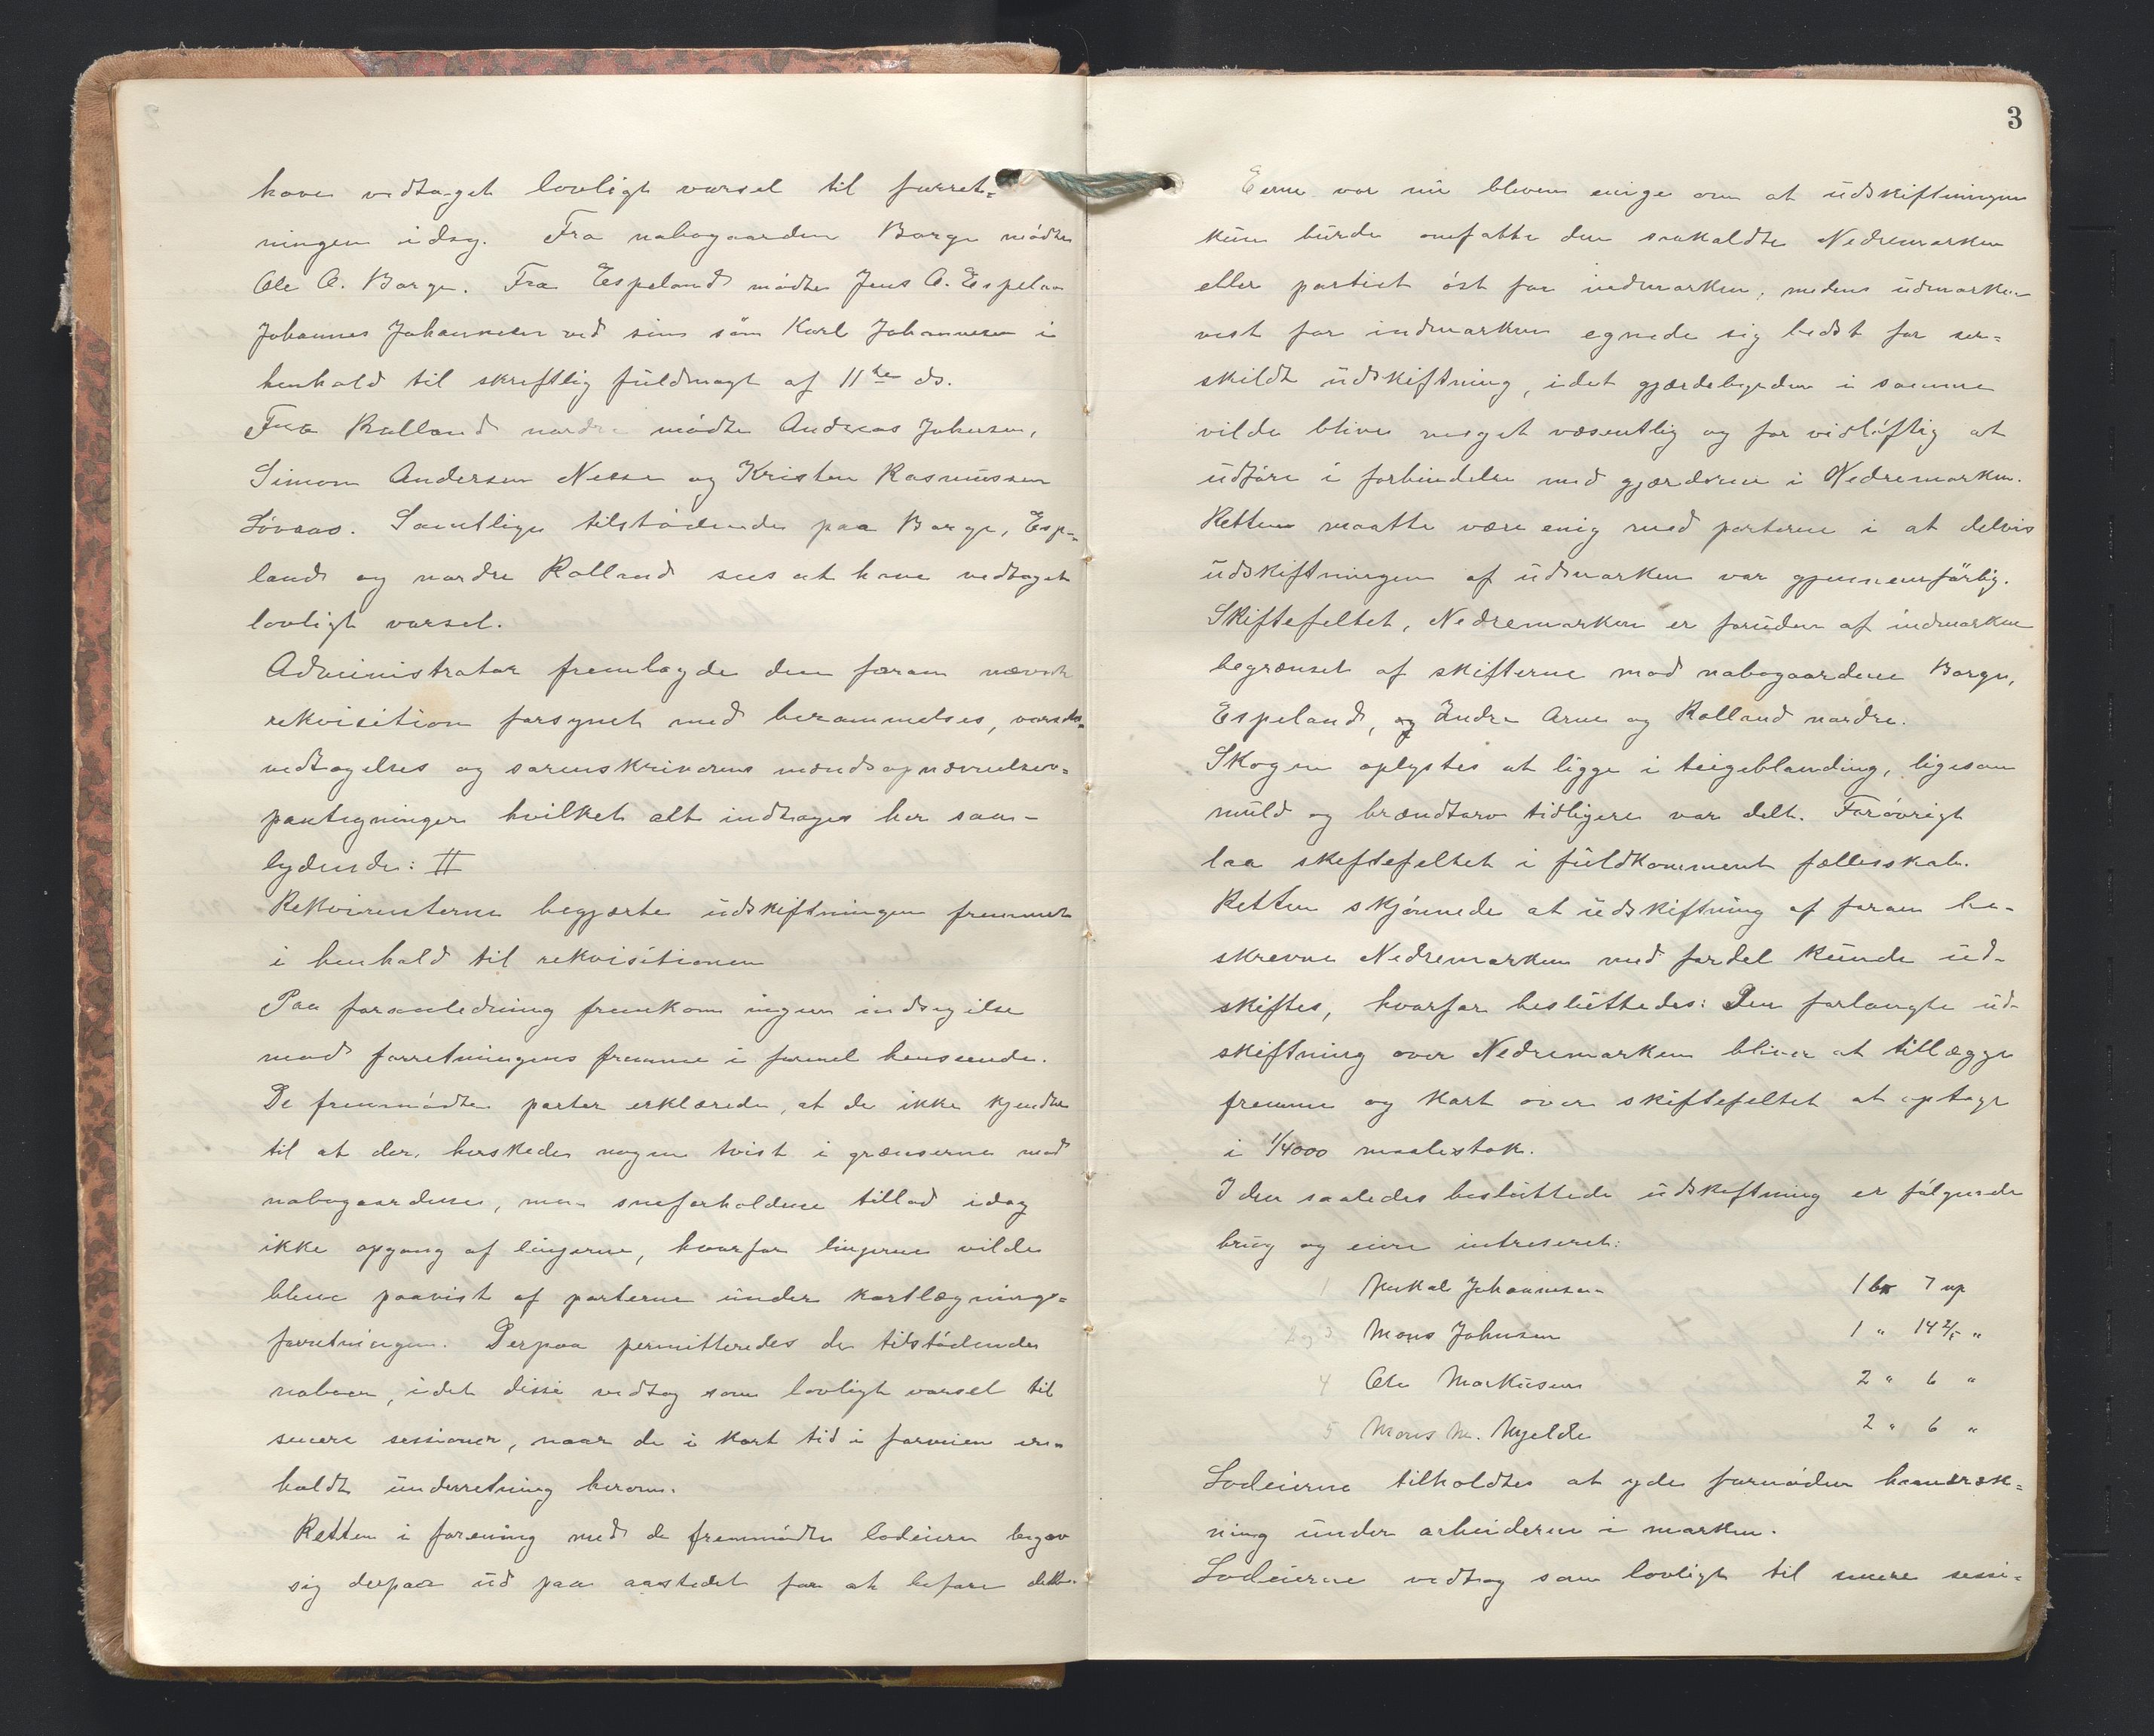 have vedtaget lovligt varsel til forret=
ningen idag. Fra nabogaarden Borge mødte
Ole O. Borge. Fra Espeland mødte Jens O. Espeland
Johannes Johannesen ved sin søn Karl Johannesen i
henhold til skriftlig fuldmagt af 11te ds.
Fra Rolland nordre mødte Andreas Johnsen,
Simon Andersen Nesse og Kristen Rasmussen
Løvaas. Samtlige tilstødende paa Borge, Espe=
land og nordre Rolland sees at have vedtaget
lovligt varsel.
Administrator fremlagde den foran nævnte
rekvisition forsynet med berammelses, varsels=
vedtagelses og sorenskriverens mændsopnævnelses=
paategninger hvilket alt indtages her saa=
lydende: II
Rekvirenterne begjærte udskiftningen fremmet
i henhold til rekvisitionen
Paa foranledning fremkom ingen indsigelse
mod forretningens fremme i formel henseende.
De fremmødte parter erklærede, at de ikke kjendte
til at der herskede nogen tvist i grænserne mod
nabogaardene, men sneforholdene tillod idag
ikke opgang af linjerne, hvorfor linjerne vilde
blive paavist af parterne under kartlægnings=
forretningen. Derpaa permitteredes de tilstødende
naboer, idet disse vedtog som lovligt varsel til
senere sessioner, naar de i kort tid i forveien er=
holdt underretning herom.
Retten i forening med de fremmødte lodeiere begav
sig derpaa ud paa aastedet for at befare dette.
3
Eierne var nu bleven enige om at udskiftningen
kun burde omfatte den saakaldte Nedremarken
eller partiet øst for indmarken, medens udmarken
vest for indmarken egnede sig bedst for sær=
skildt udskiftning, idet gjærdebyrden i samme
vilde blive meget væsentlig og for vidløftig at
udføre i forbindelse med gjærderne i Nedremarken.
Retten maatte være enig med parterne i at delvis
udskiftningen af udmarken var gjennemførlig.
Skiftefeltet, Nedremarken er foruden af indmarken
begrænset af skifterne mod nabogaardene Borge,
Espeland, og Indre Arne og Rolland nordre.
Skogen oplystes at ligge i teigeblanding, ligesom
muld og brændtorv tidligere var delt. Forøvrigt
laa skiftefeltet i fuldkomment fællesskab.
Retten skjønnede at udskiftning af foran be-
skrevne Nedremarken med fordel kunde ud-
skiftes, hvorfor besluttedes: Den forlangte ud-
skiftning over Nedremarken bliver at tillægge
fremme og kart over skiftefeltet at optage
i 1/4000 maalestok.
I den saaledes besluttede udskiftning er følgende
brug og eiere intreseret:
1 Mikal Johannesen 1 br 7 np
2 og 3 Mons Johnsen 1 " 14 2/5 "
4 Ole Markusen 2 " 6 "
5 Mons M. Mjelde 2 " 6 "
Lodeierne tilholdtes at yde fornøden haandræk=
ning under arbeiderne i marken.
Lodeierne vedtog som lovligt til senere sessi=